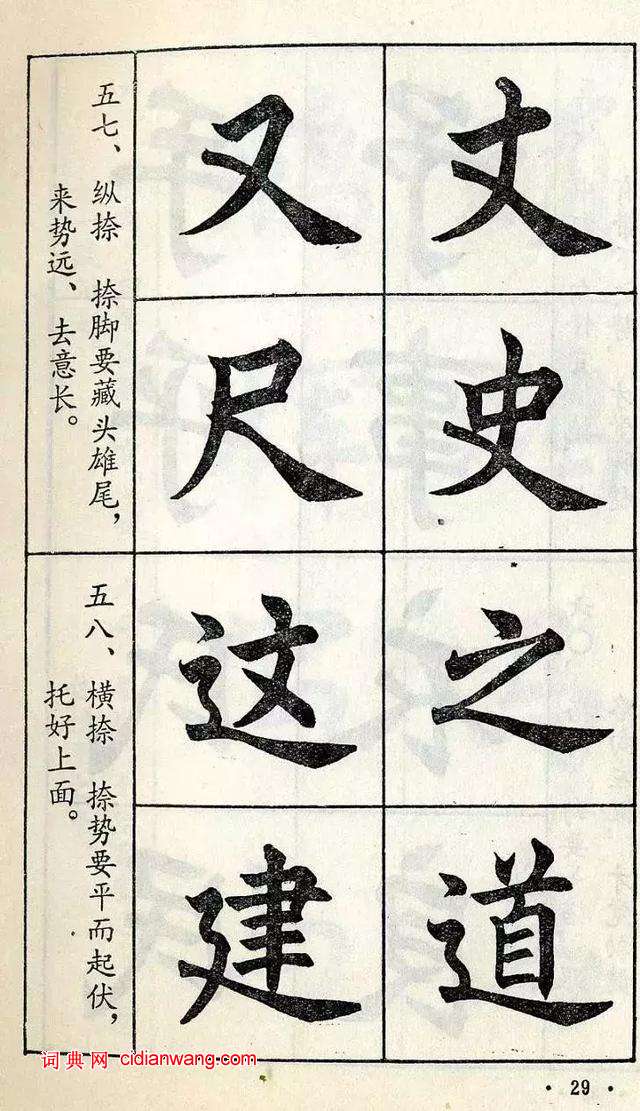 丈
史
又
尺
五七、纵捺 捺脚要藏头雄尾，
来势远、去意长。
之
道
这
建
五八、横捺 捺势要平而起伏，
托好上面。
词典网 cidianwang.com
· 29 ·